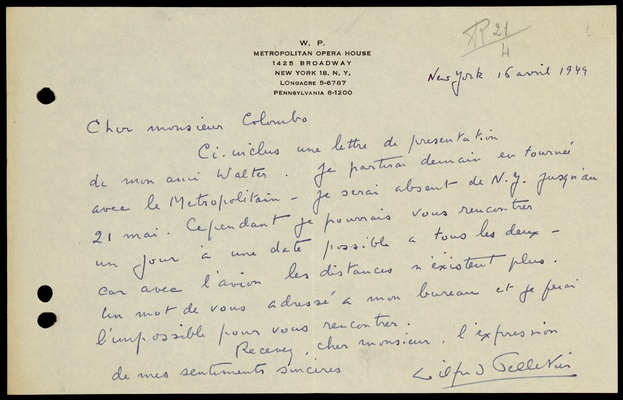 R 21
4
W. P.
METROPOLITAN OPERA HOUSE
1425 BROADWAY
NEW YORK 18, N. Y.
LONGACRE 5-6787
PENNSYLVANIA 6-1200
New York 16 avril 1949
Cher monsieur Colombo
Ci-inclus une lettre de presentation
de mon ami Walter. Je partirai demain en tournée
avec le Metropolitain - je serai absent de N.Y. jusqu'au
21 mai. Cependant je pourrais vous rencontrer
un jour à une date possible a tous les deux -
car avec l'avion les distances n'existent plus.
Un mot de vous adressé a mon bureau et je ferai
l'impossible pour vous rencontrer.
Recevez, cher monsieur, l'expression
de mes sentiments sincères
Wilfrid Pelletier